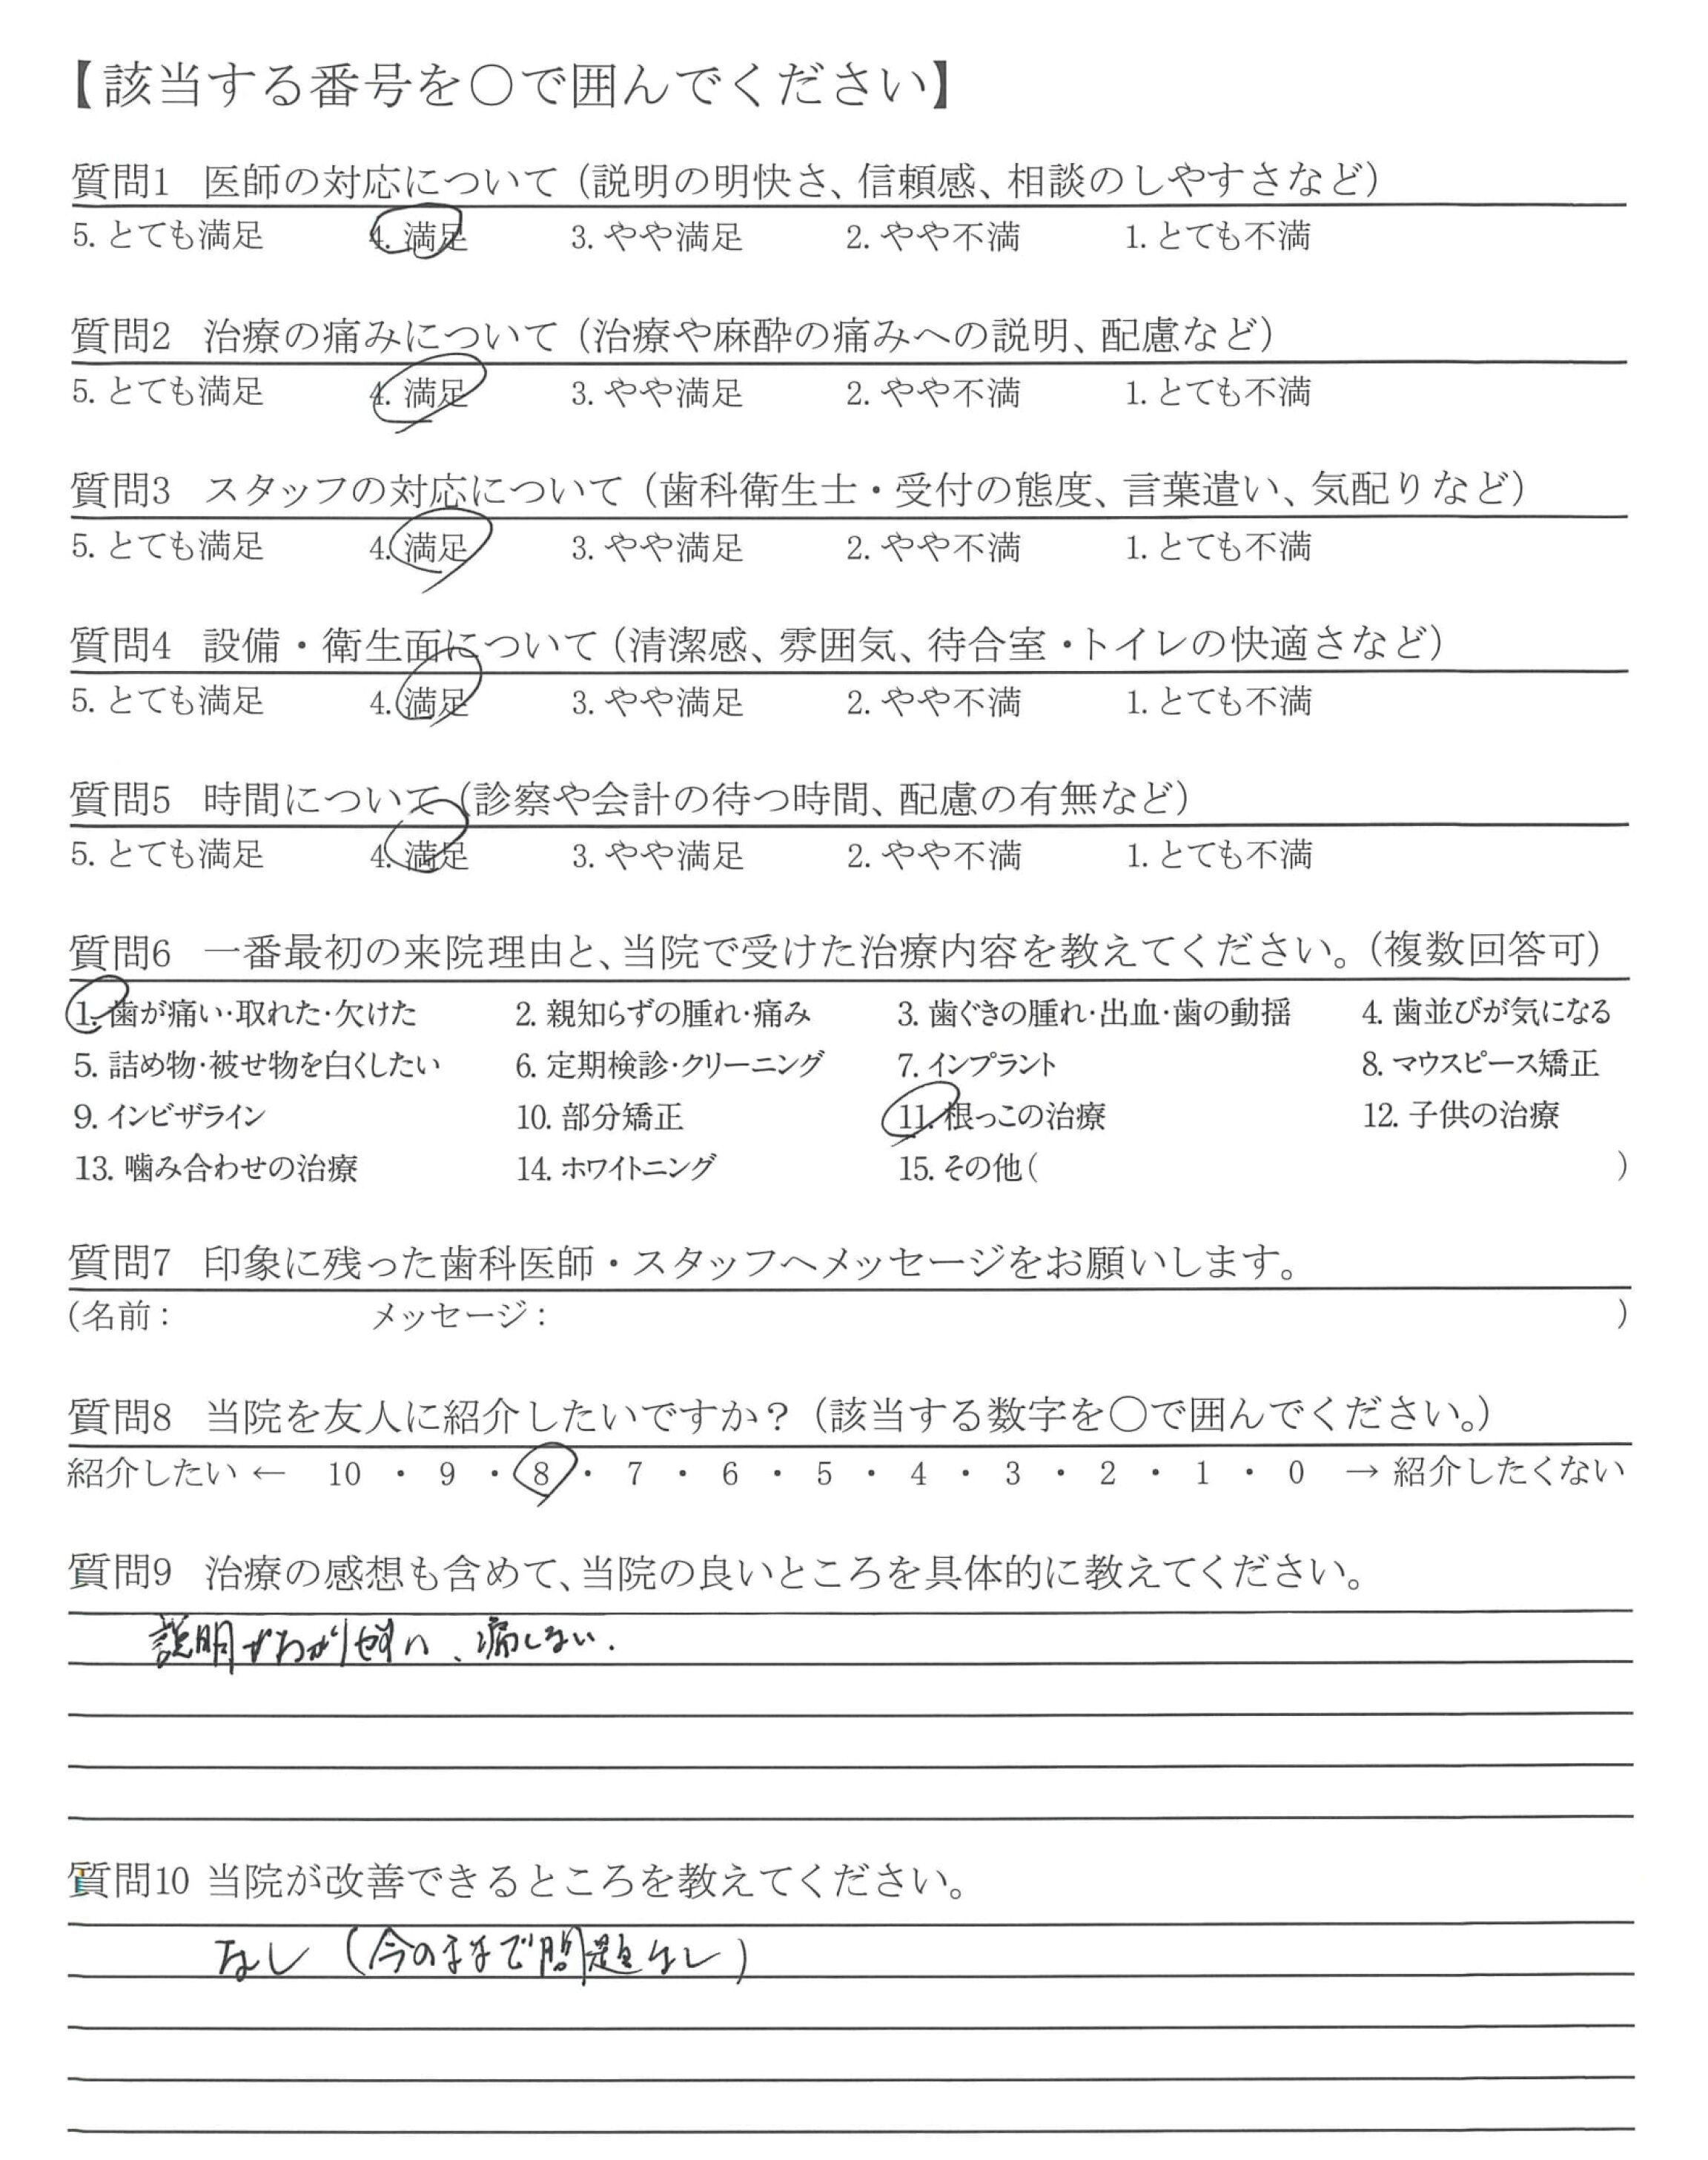 【該当する番号を○で囲んでください】
質問1 医師の対応について（説明の明快さ、信頼感、相談のしやすさなど）
5. とても満足 4. 満足 3. やや満足 2. やや不満 1. とても不満
質問2 治療の痛みについて（治療や麻酔の痛みへの説明、配慮など）
5. とても満足 4. 満足 3. やや満足 2. やや不満 1. とても不満
質問3 スタッフの対応について（歯科衛生士・受付の態度、言葉遣い、気配りなど）
5. とても満足 4. 満足 3. やや満足 2. やや不満 1. とても不満
質問4 設備・衛生面について（清潔感、雰囲気、待合室・トイレの快適さなど）
5. とても満足 4. 満足 3. やや満足 2. やや不満 1. とても不満
質問5 時間について（診察や会計の待つ時間、配慮の有無など）
5. とても満足 4. 満足 3. やや満足 2. やや不満 1. とても不満
質問6 一番最初の来院理由と、当院で受けた治療内容を教えてください。（複数回答可）
1. 歯が痛い・取れた・欠けた 2. 親知らずの腫れ・痛み 3. 歯ぐきの腫れ・出血・歯の動揺 4. 歯並びが気になる
5. 詰め物・被せ物を白くしたい 6. 定期検診・クリーニング 7. インプラント 8. マウスピース矯正
9. インビザライン 10. 部分矯正 11. 根っこの治療 12. 子供の治療
13. 噛み合わせの治療 14. ホワイトニング 15. その他（ ）
質問7 印象に残った歯科医師・スタッフへメッセージをお願いします。
（名前： メッセージ： ）
質問8 当院を友人に紹介したいですか？（該当する数字を○で囲んでください。）
紹介したい ← 10 ・ 9 ・ 8 ・ 7 ・ 6 ・ 5 ・ 4 ・ 3 ・ 2 ・ 1 ・ 0 → 紹介したくない
質問9 治療の感想も含めて、当院の良いところを具体的に教えてください。
説明がわかり、痛しない.
質問10 当院が改善できるところを教えてください。
なし（今のままで問題なし）